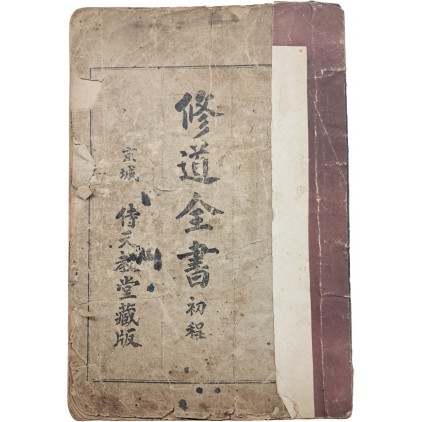 修道全書 初程
京城 侍天教堂藏版